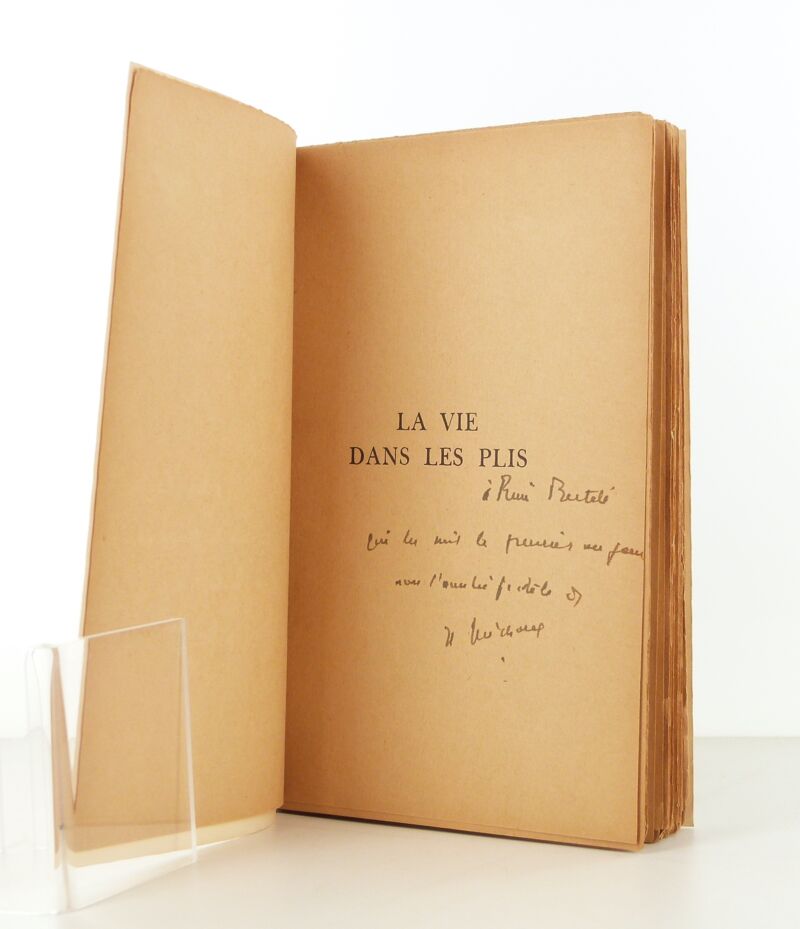 LA VIE
DANS LES PLIS
à René Bertelé
qui les mit le premier au jour
avec l'amitié fidèle d
H Michaux